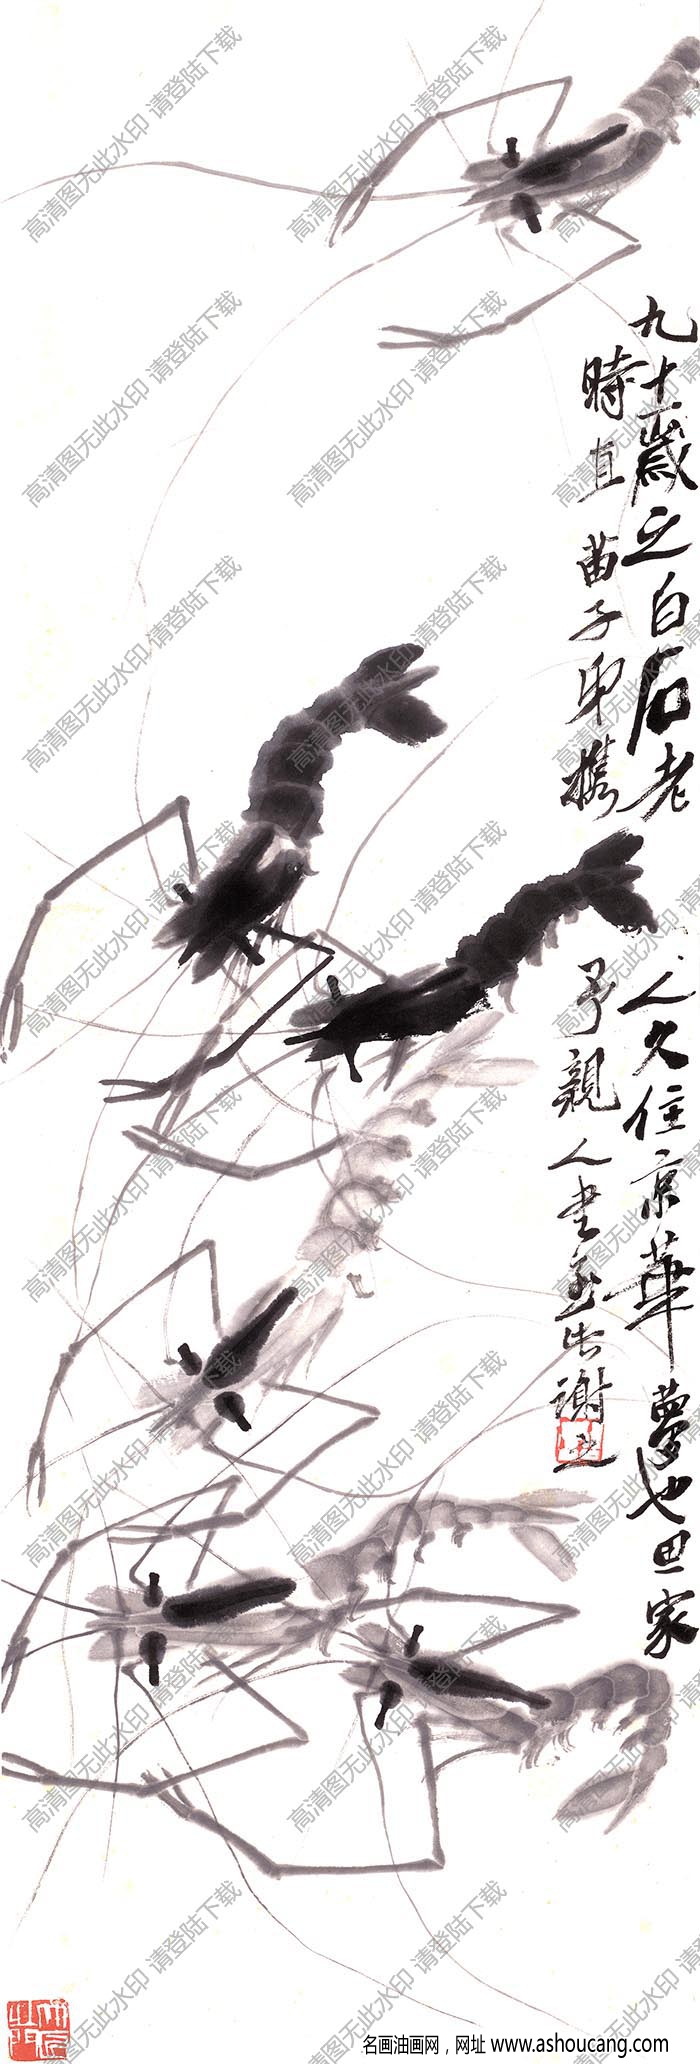 九十一歲之白石老
人久住京華夢也思家
時直苗子郁携
予親人書至告謝
高清图无此水印 请登陆下载
名画油画网，网址 www.ashoucang.com